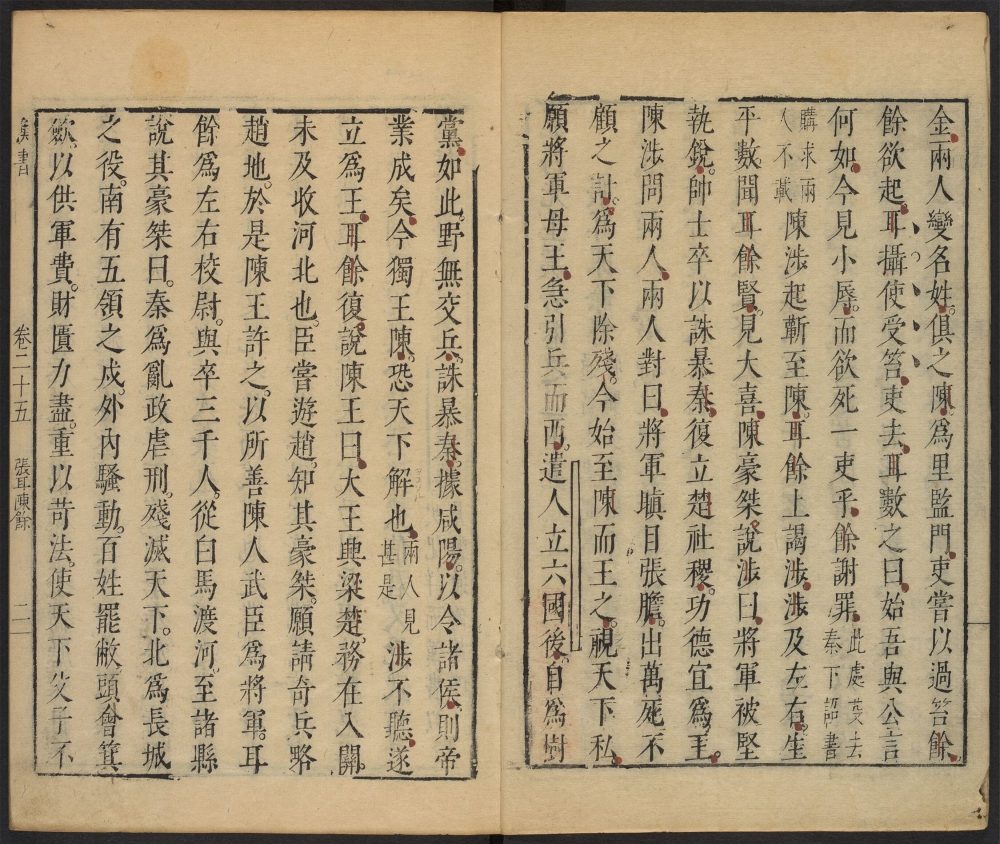 金兩人變名姓俱之陳爲里監門吏嘗以過笞餘
餘欲起耳攝使受笞吏去耳數之曰始吾與公言
何如今見小辱而欲死一吏乎餘謝罪此處葼去秦下詔書
購求兩人不載陳涉起蘄至陳耳餘上謁涉涉及左右生
平數聞耳餘賢見大喜陳豪桀說涉曰將軍被堅
執銳帥士卒以誅暴秦復立楚社稷功德宜爲王
陳涉問兩人兩人對曰將軍瞋目張膽出萬死不
顧之計爲天下除殘今始至陳而王之視天下私
願將軍毋王急引兵而西遣人立六國後自爲樹
黨如此野無交兵誅暴秦據咸陽以令諸侯則帝
業成矣今獨王陳恐天下解也兩人見甚是涉不聽遂
立爲王耳餘復說陳王曰大王興梁楚務在入關
未及收河北也臣嘗遊趙知其豪桀願請奇兵略
趙地於是陳王許之以所善陳人武臣爲將軍耳
餘爲左右校尉與卒三千人從白馬渡河至諸縣
說其豪桀曰秦爲亂政虐刑殘滅天下北爲長城
之役南有五領之戍外內騷動百姓罷敝頭會箕
斂以供軍費財匱力盡重以苛法使天下父子不
漢書 卷二十五 張耳陳餘 二